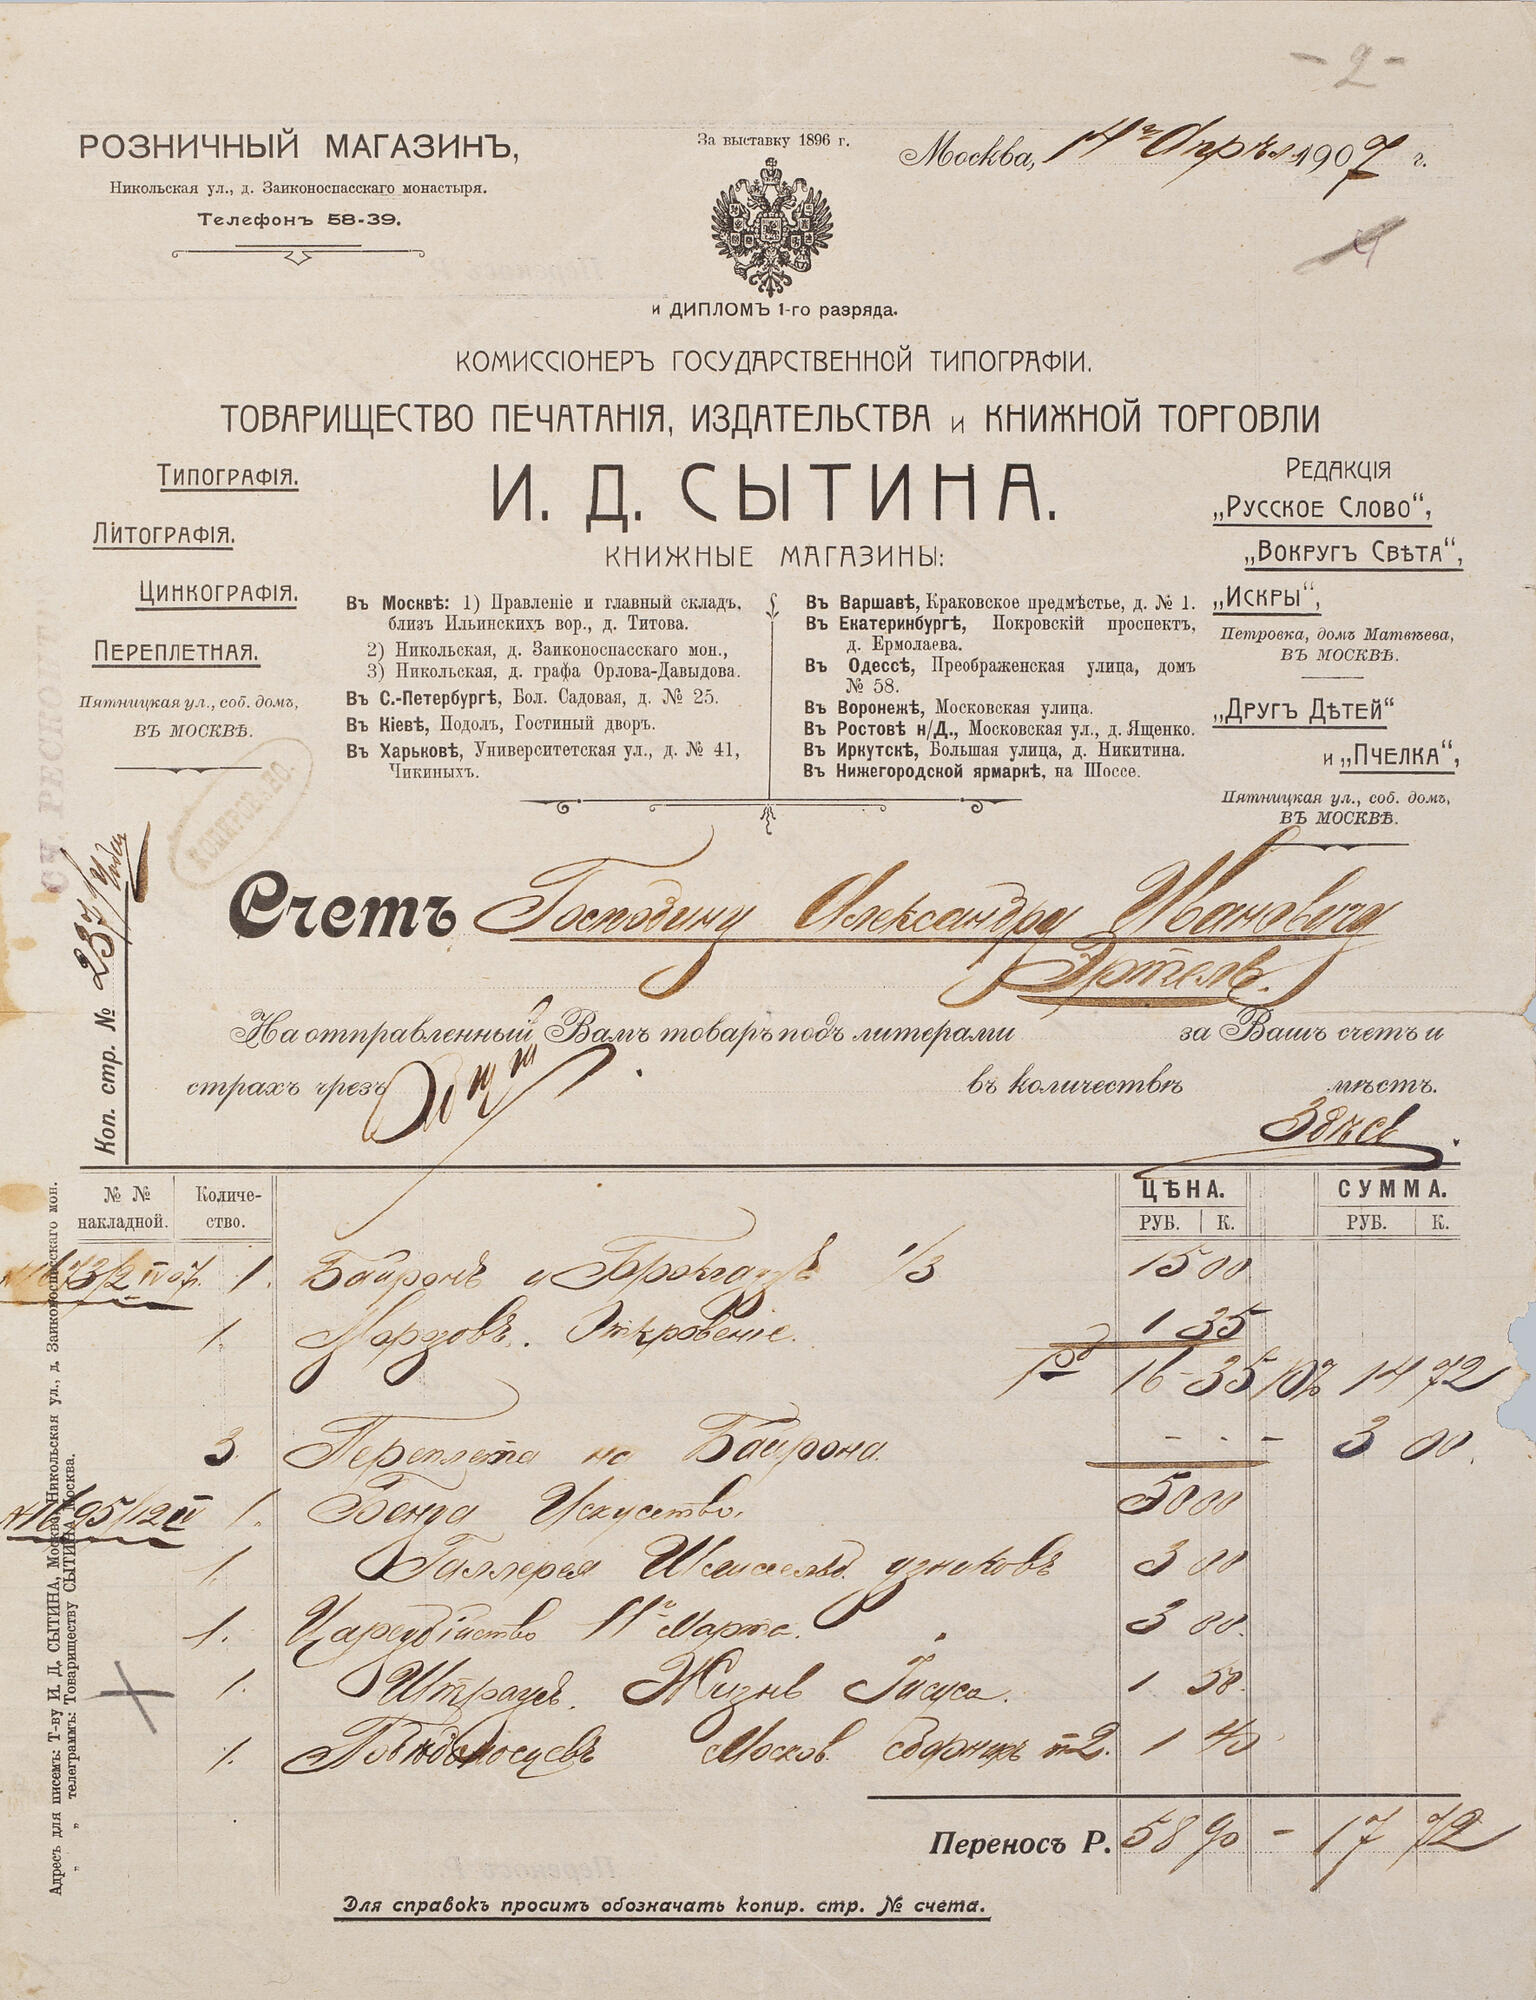 - 2 -
РОЗНИЧНЫЙ МАГАЗИНЪ,
Никольская ул., д. Заиконоспасскаго монастыря.
Телефонъ 58-39.
За выставку 1896 г.
и ДИПЛОМЪ 1-го разряда.
Москва, 14го Апрѣл 1907 г.
КОМИССІОНЕРЪ ГОСУДАРСТВЕННОЙ ТИПОГРАФІИ.
ТОВАРИЩЕСТВО ПЕЧАТАНІЯ, ИЗДАТЕЛЬСТВА и КНИЖНОЙ ТОРГОВЛИ
И. Д. СЫТИНА.
КНИЖНЫЕ МАГАЗИНЫ:
ТИПОГРАФІЯ.
ЛИТОГРАФІЯ.
ЦИНКОГРАФІЯ.
ПЕРЕПЛЕТНАЯ.
Пятницкая ул., соб. домъ,
ВЪ МОСКВѢ.
Въ Москвѣ: 1) Правленіе и главный складъ,
близъ Ильинскихъ вор., д. Титова.
2) Никольская, д. Заиконоспасскаго мон.,
3) Никольская, д. графа Орлова-Давыдова.
Въ С.-Петербургѣ, Бол. Садовая, д. № 25.
Въ Кіевѣ, Подолъ, Гостиный дворъ.
Въ Харьковѣ, Университетская ул., д. № 41,
Чикиныхъ.
Въ Варшавѣ, Краковское предмѣстье, д. № 1.
Въ Екатеринбургѣ, Покровскій проспектъ,
д. Ермолаева.
Въ Одессѣ, Преображенская улица, домъ
№ 58.
Въ Воронежѣ, Московская улица.
Въ Ростовѣ н/Д., Московская ул., д. Ященко.
Въ Иркутскѣ, Большая улица, д. Никитина.
Въ Нижегородской ярмаркѣ, на Шоссе.
РЕДАКЦІЯ
„РУССКОЕ СЛОВО“,
„ВОКРУГЪ СВѢТА“,
„ИСКРЫ“,
Петровка, домъ Матвѣева,
ВЪ МОСКВѢ.
„ДРУГЪ ДѢТЕЙ“
и „ПЧЕЛКА“,
Пятницкая ул., соб. домъ,
ВЪ МОСКВѢ.
КОПИРОВАНО.
Коп. стр. № 237/
Счетъ Господину Александру Ивановичу
Эртель.
На отправленный Вамъ товаръ подъ литерами за Вашъ счетъ и
страхъ чрезъ въ количествѣ мѣстъ.
Здѣсь
№ № накладной. Количество. ЦѢНА. РУБ. К. СУММА. РУБ. К.
№1673/2 IV 07. 1. Байронъ и Брокгаузъ 1/3 15 00
1. Морозовъ. Откровеніе. 1 35
16 - 35 10% 14 72
3 Переплета на Байрона. - - - 3 00.
№1695/12 IV 1. Бенуа Искусство. 50 00
1. Галлерея Шлиссельб. узниковъ 3 00
1. Цареубійство 11го Марта. 3 00.
1. Штраусъ. Жизнь Іисуса. 1 50.
1. Побѣдоносцевъ Москов. сборникъ т2. 1 40
Переносъ Р. 58 90 - 17 72
Для справокъ просимъ обозначать копир. стр. № счета.
Адресъ для писемъ: Т-ву И. Д. СЫТИНА, Москва, Никольская ул., д. Заиконоспасскаго мон.
„ „ телеграммъ: Товариществу СЫТИНА Москва.